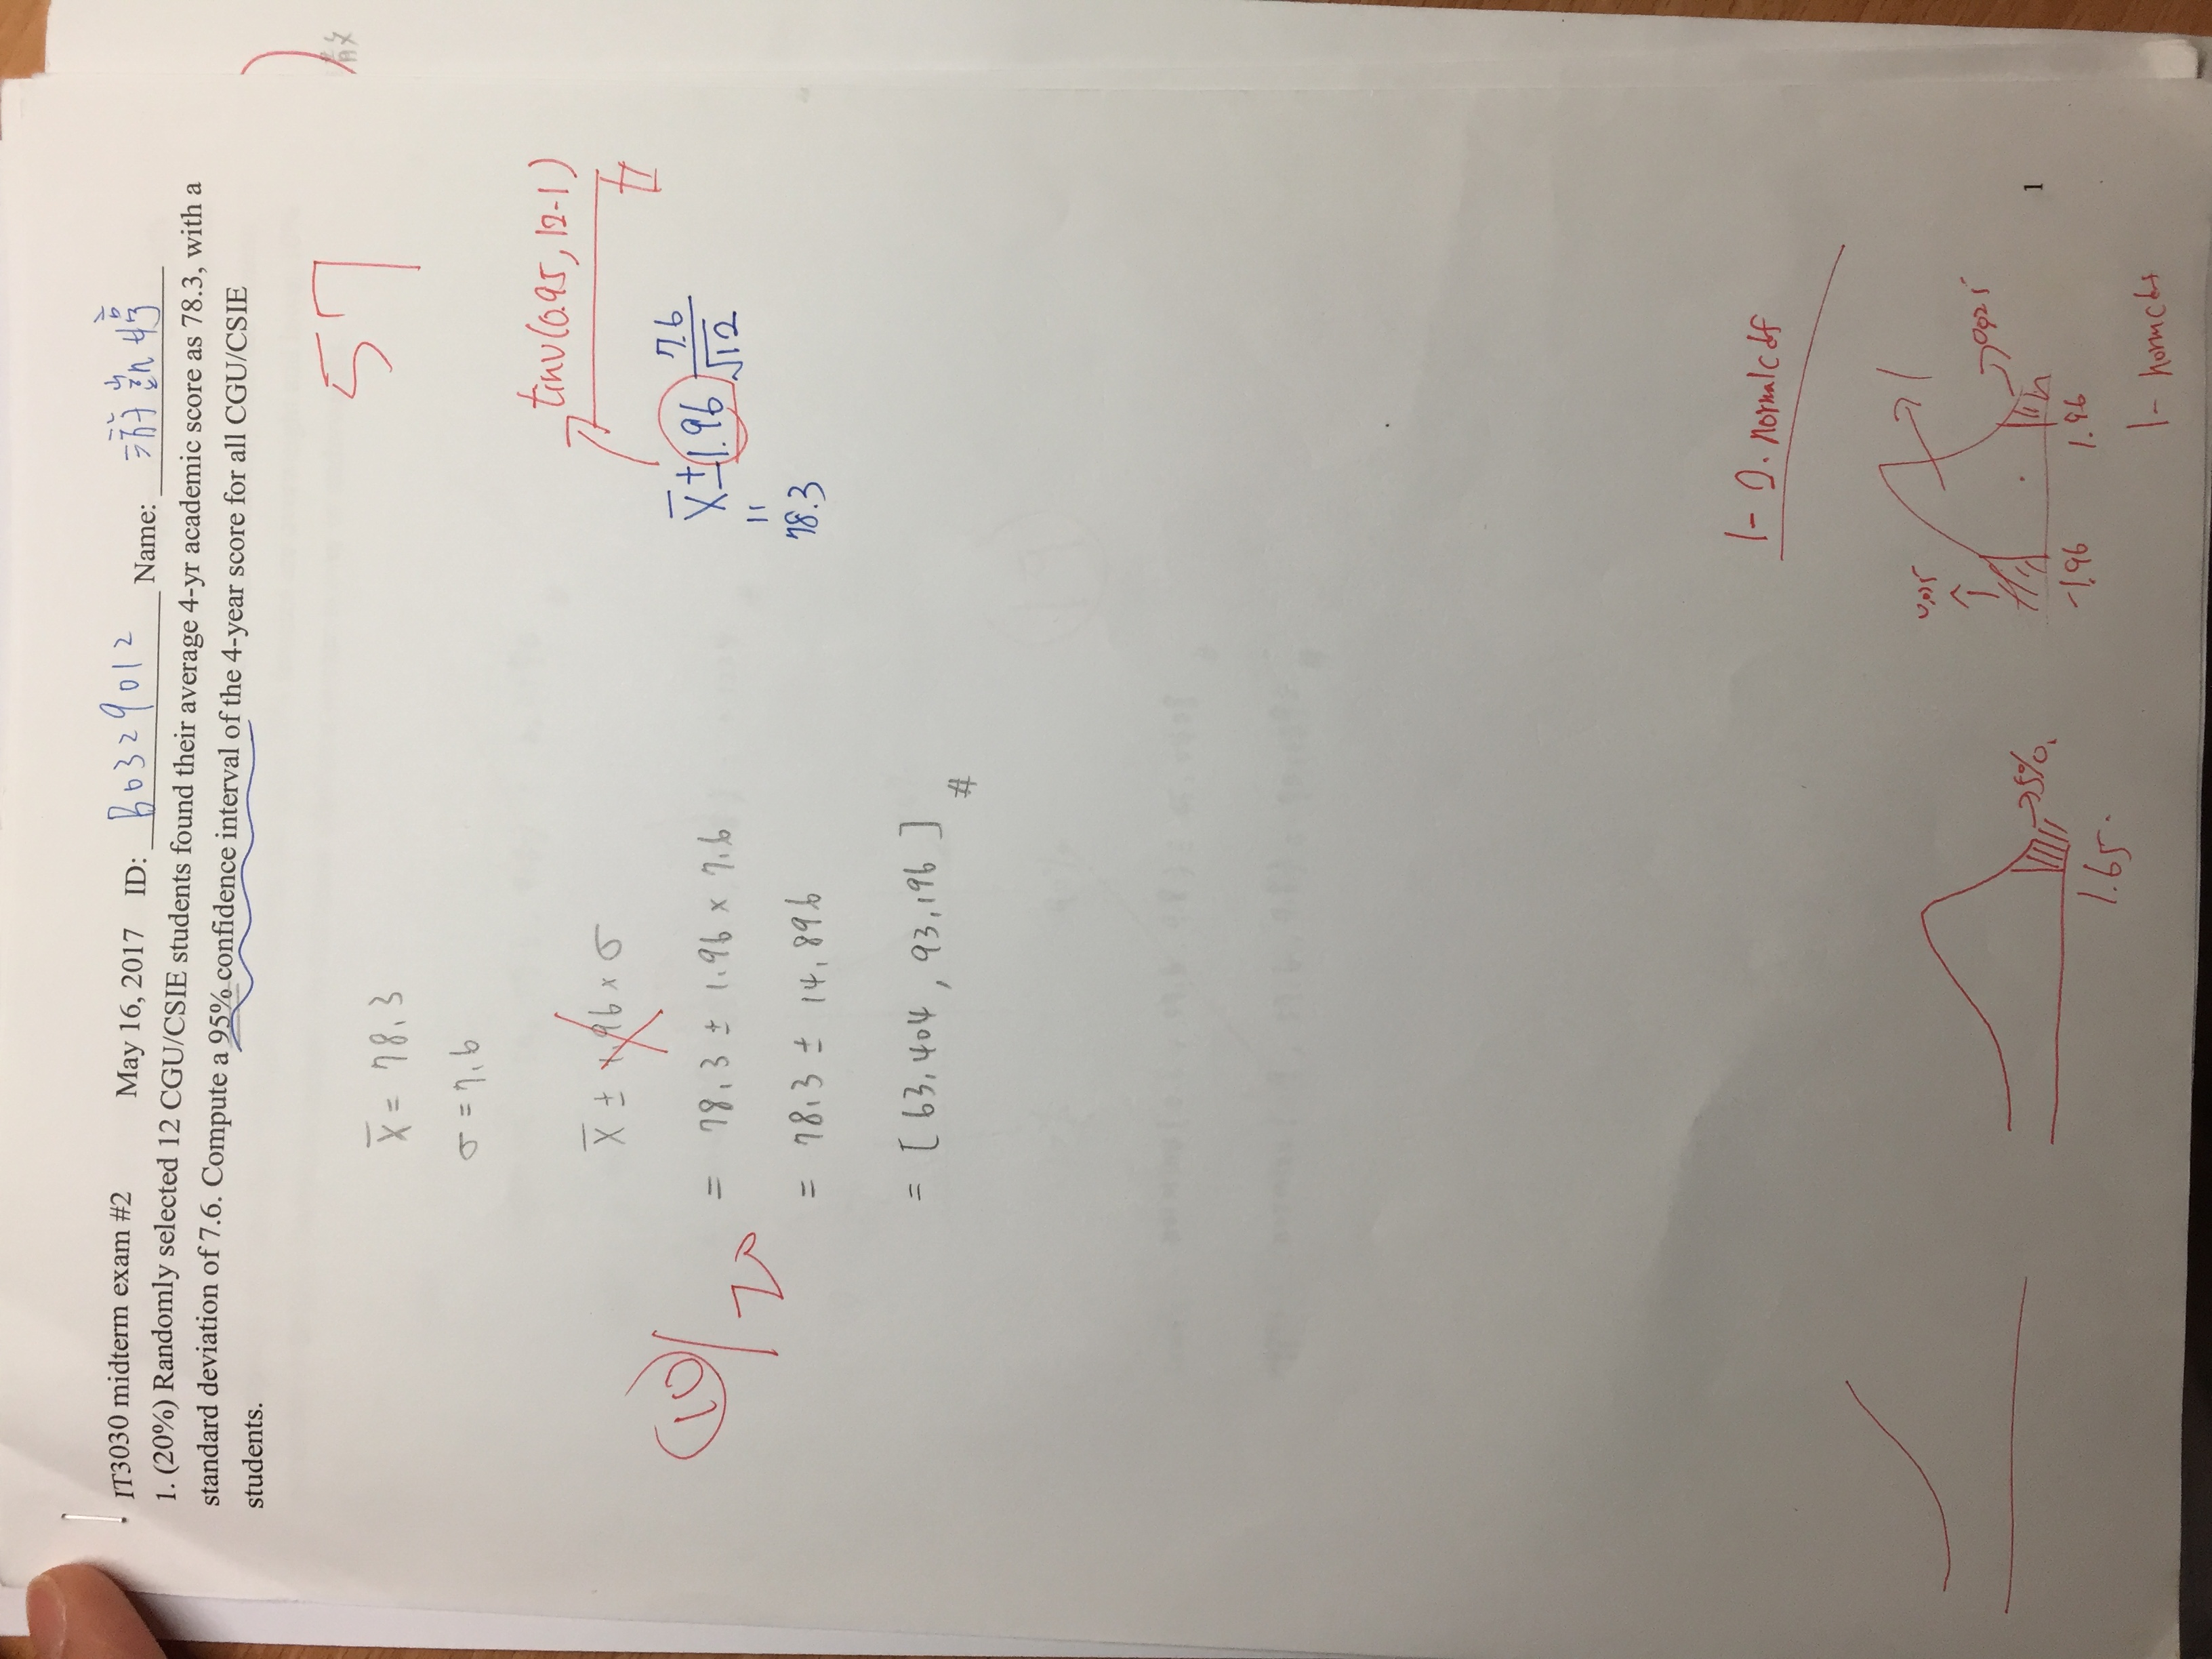 IT3030 midterm exam #2 May 16, 2017 ID: B0329012 Name: 游凱婷
1. (20%) Randomly selected 12 CGU/CSIE students found their average 4-yr academic score as 78.3, with a
standard deviation of 7.6. Compute a 95% confidence interval of the 4-year score for all CGU/CSIE
students.
57
散
X̄ = 78.3
σ = 7.6
tinv(0.95, 12-1)
t
X̄ ± 1.96 × σ
10/20
= 78.3 ± 1.96 × 7.6
X̄ ± 1.96 7.6/√12
=
78.3
= 78.3 ± 14.896
= [ 63.404 , 93.196 ] #
1- 2. normalcdf
0.025
1
0.025
5%
1
-1.96 1.96
1.65
1- normcdf